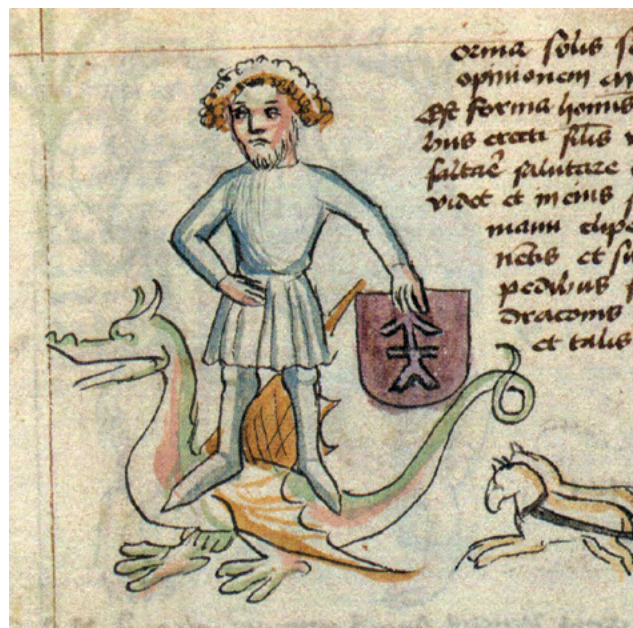 orma solis s
opinionem
Est forma homis
bus erecti filis v
saltaē salutare
videt et in eius
manu clipe
nētis et su
pedibus
draconis
et talis